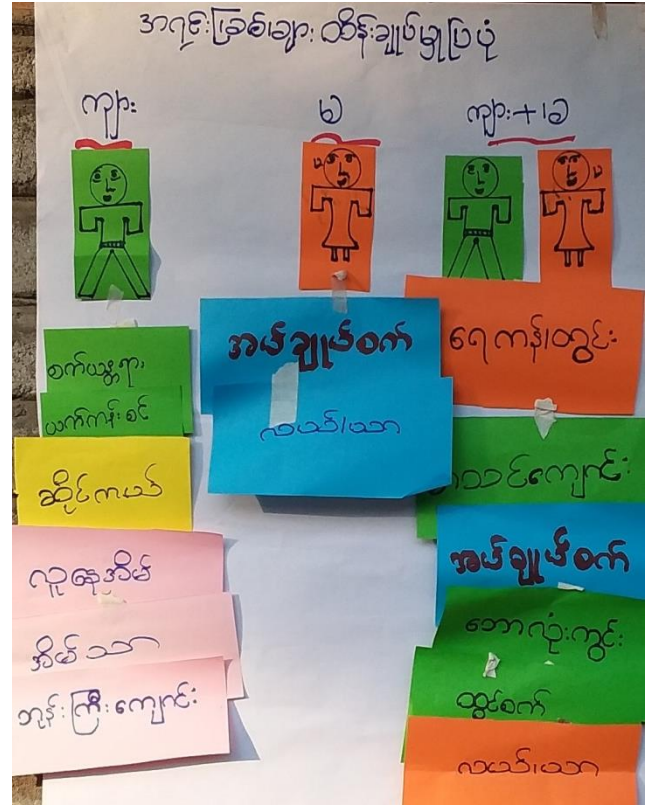 အရင်းမြစ်များ ထိန်းချုပ်မှုပြပုံ
ကျား
မ
ကျား+မ
စက်ယန္တရား
ယက်ကန်းစင်
ဆိုင်ကယ်
လူနေအိမ်
အိမ်သာ
ဘုန်းကြီးကျောင်း
အပ်ချုပ်စက်
လယ်/ယာ
ရေကန်/တွင်း
စာသင်ကျောင်း
အပ်ချုပ်စက်
ဘောလုံးကွင်း
ထွန်စက်
လယ်/ယာ